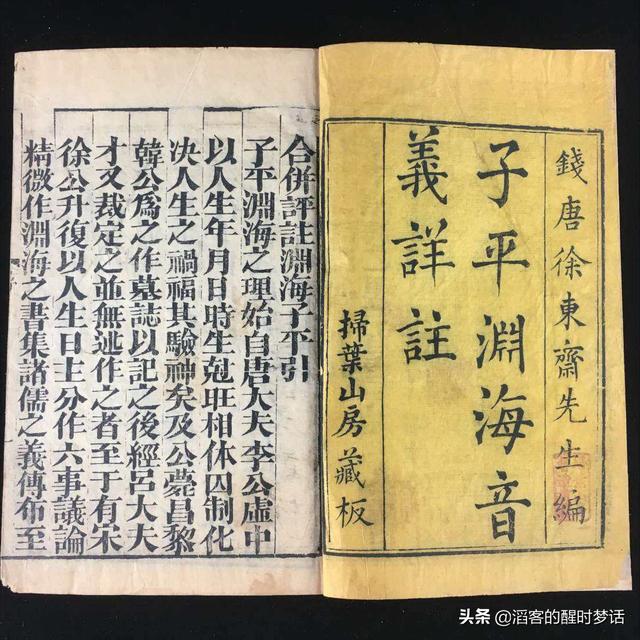 錢唐徐東齋先生編
子平淵海音
義詳註
掃葉山房藏板
合併評註淵海子平引
子平淵海之理始自唐大夫李公虛中
以人生年月日時生剋旺相休囚制化
决人生之禍福其驗神矣及公薨昌黎
韓公爲之作墓誌以記之後經呂大夫
才又裁定之並無述作之者至于有宋
徐公升復以人生日主分作六事議論
精微作淵海之書集諸儒之義傳布至
头条 @滔客的醒时梦话